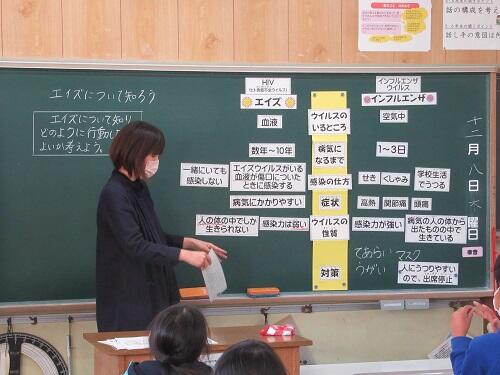 話の構成を考え
話し手の意図は何
エイズについて知ろう
エイズについて知り
どのように行動し
よいか考えよう。
HIV
(ヒト免疫不全ウイルス)
エイズ
インフルエンザ
ウイルス
インフルエンザ
血液
ウイルスの
いるところ
空気中
数年～10年
病気に
なるまで
1～3日
一緒にいても
感染しない
エイズウイルスがいる
血液が傷口についた
ときに感染する
感染の仕方
せき
くしゃみ
学校生活
でうつる
病気にかかりやすい
症状
高熱
関節痛
頭痛
人の体の中でしか
生きられない
感染力は弱い
ウイルスの
性質
感染力が強い
病気の人の体から
出たものの中で
生きている
対策
てあらい マスク
うがい
人にうつりやすい
ので、出席停止
十二月八日木曜日